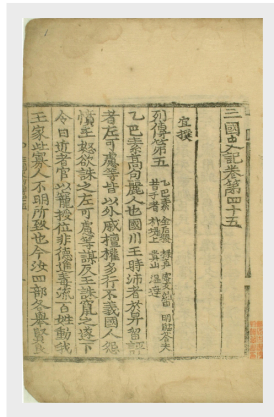 三國史記卷第四十五
宣撰
列傳第五 乙巴素 金后稷 祿眞 密友紐由 明臨荅夫
昔于老 朴堤上 貴山 溫達
乙巴素高句麗人也國川王時沛者於畀留評
者左可慮等皆以外戚擅權多行不義國人怨
憤王怒欲誅之左可慮等謀反王誅竄之遂下
令曰近者官以寵授位非德進毒流百姓動我
王家此寡人不明所致也今汝四部各擧賢良